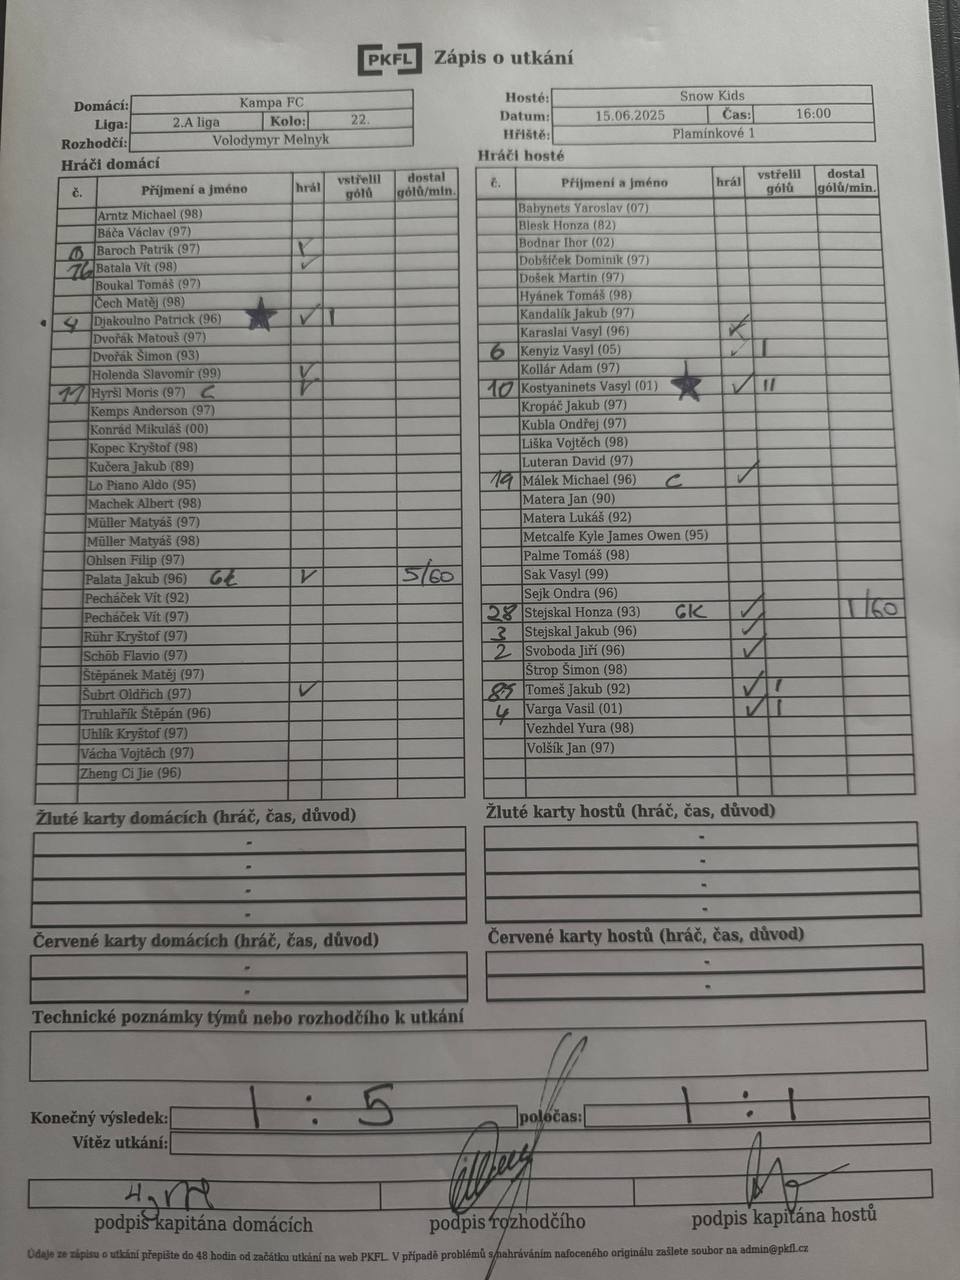 PKFL Zápis o utkání
Domácí: Kampa FC
Liga: 2.A liga Kolo: 22.
Rozhodčí: Volodymyr Melnyk
Hosté: Snow Kids
Datum: 15.06.2025 Čas: 16:00
Hřiště: Plamínkové 1
Hráči domácí
č. Příjmení a jméno hrál vstřelil gólů dostal gólů/min.
Arntz Michael (98)
Báča Václav (97)
Baroch Patrik (97) ✓
16 Batala Vít (98) ✓
Boukal Tomáš (97)
Čech Matěj (98)
4 Djakoulno Patrick (96) ★ ✓ I
Dvořák Matouš (97)
Dvořák Šimon (93)
Holenda Slavomír (99) ✓
11 Hyršl Moris (97) C ✓
Kemps Anderson (97)
Konrád Mikuláš (00)
Kopec Kryštof (98)
Kučera Jakub (89)
Lo Piano Aldo (95)
Machek Albert (98)
Müller Matyáš (97)
Müller Matyáš (98)
Ohlsen Filip (97)
Palata Jakub (96) GK ✓ 5/60
Pecháček Vít (92)
Pecháček Vít (97)
Rühr Kryštof (97)
Schöb Flavio (97)
Štěpánek Matěj (97)
Šubrt Oldřich (97) ✓
Truhlařík Štěpán (96)
Uhlík Kryštof (97)
Vácha Vojtěch (97)
Zheng Ci Jie (96)
Hráči hosté
č. Příjmení a jméno hrál vstřelil gólů dostal gólů/min.
Babynets Yaroslav (07)
Blesk Honza (82)
Bodnar Ihor (02)
Dobšíček Dominik (97)
Došek Martin (97)
Hyánek Tomáš (98)
Kandalík Jakub (97)
Karaslai Vasyl (96)
6 Kenyiz Vasyl (05) ✓ I
Kollár Adam (97)
10 Kostyaninets Vasyl (01) ★ ✓ II
Kropáč Jakub (97)
Kubla Ondřej (97)
Liška Vojtěch (98)
Luteran David (97)
19 Málek Michael (96) C ✓
Matera Jan (90)
Matera Lukáš (92)
Metcalfe Kyle James Owen (95)
Palme Tomáš (98)
Sak Vasyl (99)
Sejk Ondra (96)
28 Stejskal Honza (93) GK ✓ 1/60
3 Stejskal Jakub (96) ✓
2 Svoboda Jiří (96) ✓
Štrop Šimon (98)
85 Tomeš Jakub (92) ✓ I
4 Varga Vasil (01) ✓ I
Vezhdel Yura (98)
Volšík Jan (97)
Žluté karty domácích (hráč, čas, důvod)
-
-
-
-
Žluté karty hostů (hráč, čas, důvod)
-
-
-
-
Červené karty domácích (hráč, čas, důvod)
-
-
Červené karty hostů (hráč, čas, důvod)
-
-
Technické poznámky týmů nebo rozhodčího k utkání
Konečný výsledek: 1 : 5 poločas: 1 : 1
Vítěz utkání:
podpis kapitána domácích podpis rozhodčího podpis kapitána hostů
Údaje ze zápisu o utkání přepište do 48 hodin od začátku utkání na web PKFL. V případě problémů s nahráváním nafoceného originálu zašlete soubor na admin@pkfl.cz